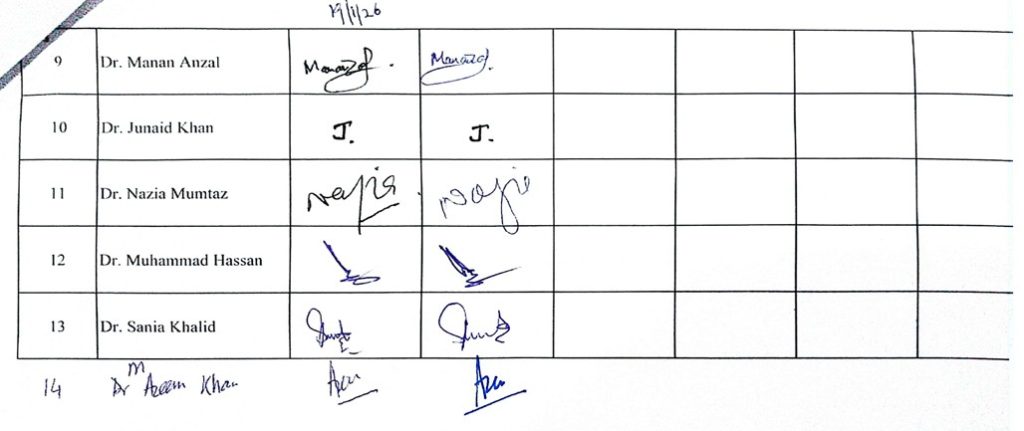 19/1/26
9 Dr. Manan Anzal Mananzal. Mananzal.
10 Dr. Junaid Khan J. J.
11 Dr. Nazia Mumtaz Nazia Nazia
12 Dr. Muhammad Hassan
13 Dr. Sania Khalid
14 Dr M Azeem Khan